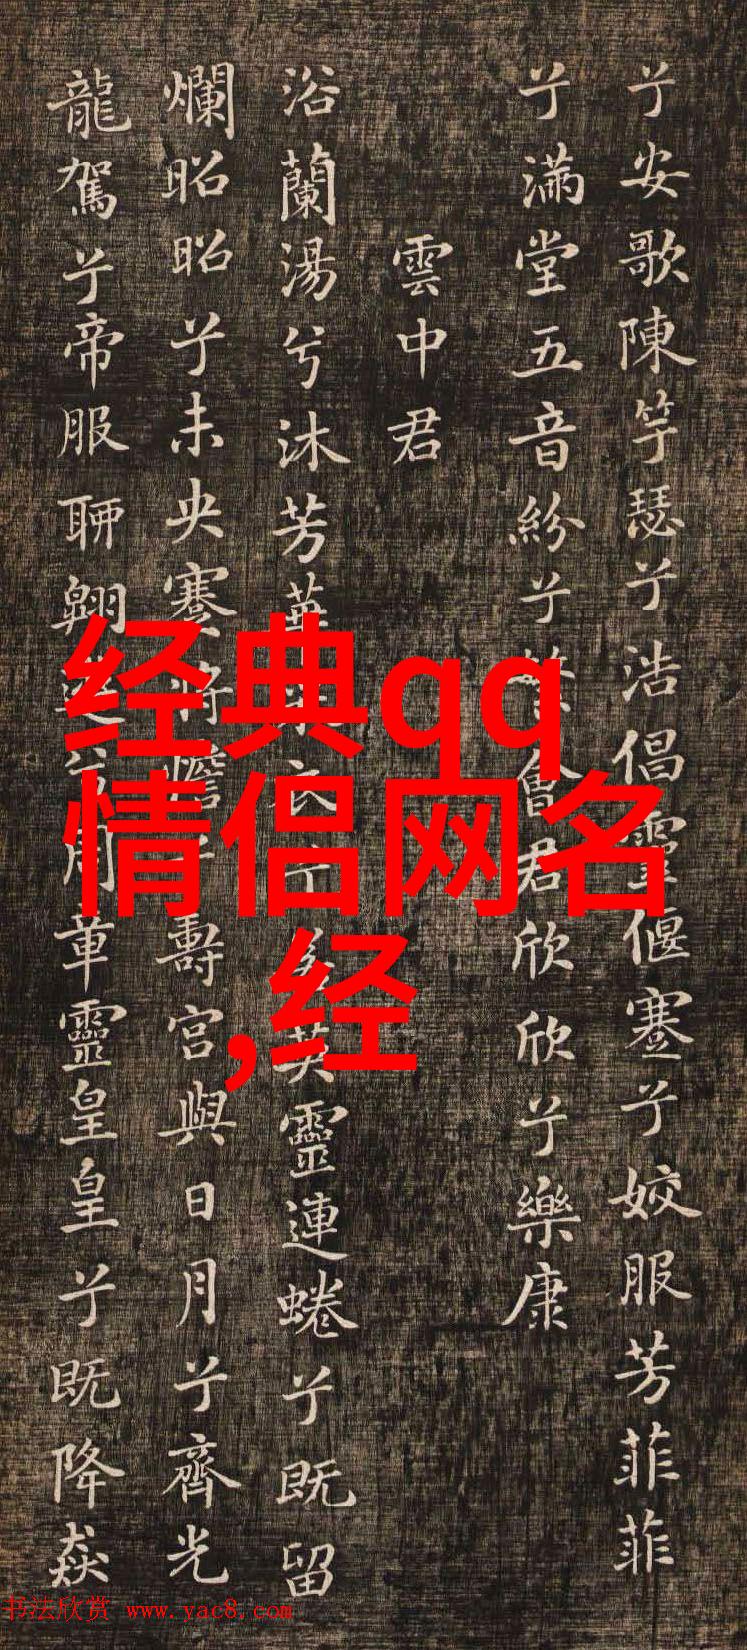 兮安歌陳竽瑟兮浩倡靈偃蹇兮姣服芳菲菲
兮滿堂五音紛兮繁會君欣欣兮樂康
雲中君
浴蘭湯兮沐芳華衣兮英靈連蜷兮既留
爛昭昭兮未央蹇將憺兮壽宮與日月兮齊光
龍駕兮帝服聊翱遊兮周章靈皇皇兮既降猋
经典qq
情侣网名
,经
书法欣赏 www.yac8.com